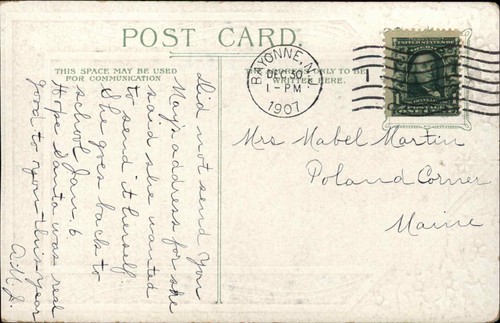 POST CARD.
THIS SPACE MAY BE USED
FOR COMMUNICATION
THE ADDRESS ONLY TO BE
WRITTEN HERE.
BAYONNE, N.J.
DEC 30
1-PM
1907
1
UNITED STATES OF AMERICA
FRANKLIN
POSTAGE
ONE CENT
Did not send you
May's address for she
said she wanted
to send it herself.
She goes back to
school Jan. 6
Hope Santa was real
good to you this year
A.M.J.
Mrs Mabel Martin
Poland Corner
Maine